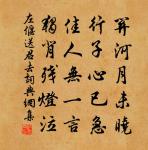 關河月未曉
行子心已急
佳人無一言
獨背殘燈泣
左偃送君去詞典網集